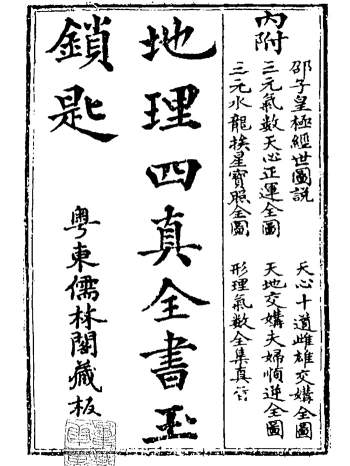 內附
邵子皇極經世圖説 天心十道雌雄交媾全圖
三元氣數天心正運全圖 天地交媾夫婦順逆全圖
三元水龍挨星寶照全圖 形理氣數全集真
地理四真全書玉
鎖匙
粵東儒林閣藏板